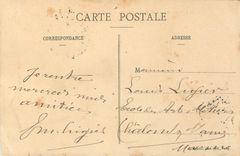 CARTE POSTALE
CORRESPONDANCE
ADRESSE
Monsieur
Je rentre
Louis Ligier
mercredi midi
Ecole des Arts et Métiers
amitiés
Châlons s/ Marne
Em. Ligier
Marne